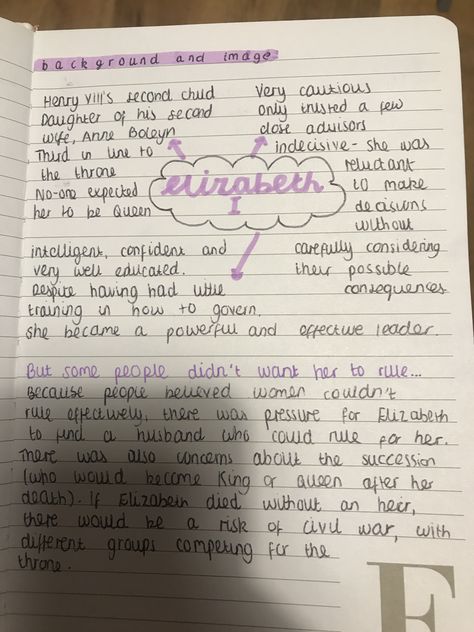 background and image
Henry VIII's second child
Daughter of his second
wife, Anne Boleyn
Third in line to
the throne
No-one expected
her to be Queen
Very cautious
only trusted a few
close advisors
indecisive - she was
reluctant
to make
decisions
without
carefully considering
their possible
consequences
elizabeth
I
intelligent, confident and
very well educated.
Despite having had little
training in how to govern.
she became a powerful and effective leader.
But some people didn't want her to rule...
Because people believed women couldn't
rule effectively, there was pressure for Elizabeth
to find a husband who could rule for her.
There was also concerns about the succession
(who would become King or Queen after her
death). if Elizabeth died without an heir,
there would be a risk of civil war, with
different groups competing for the
throne.
E